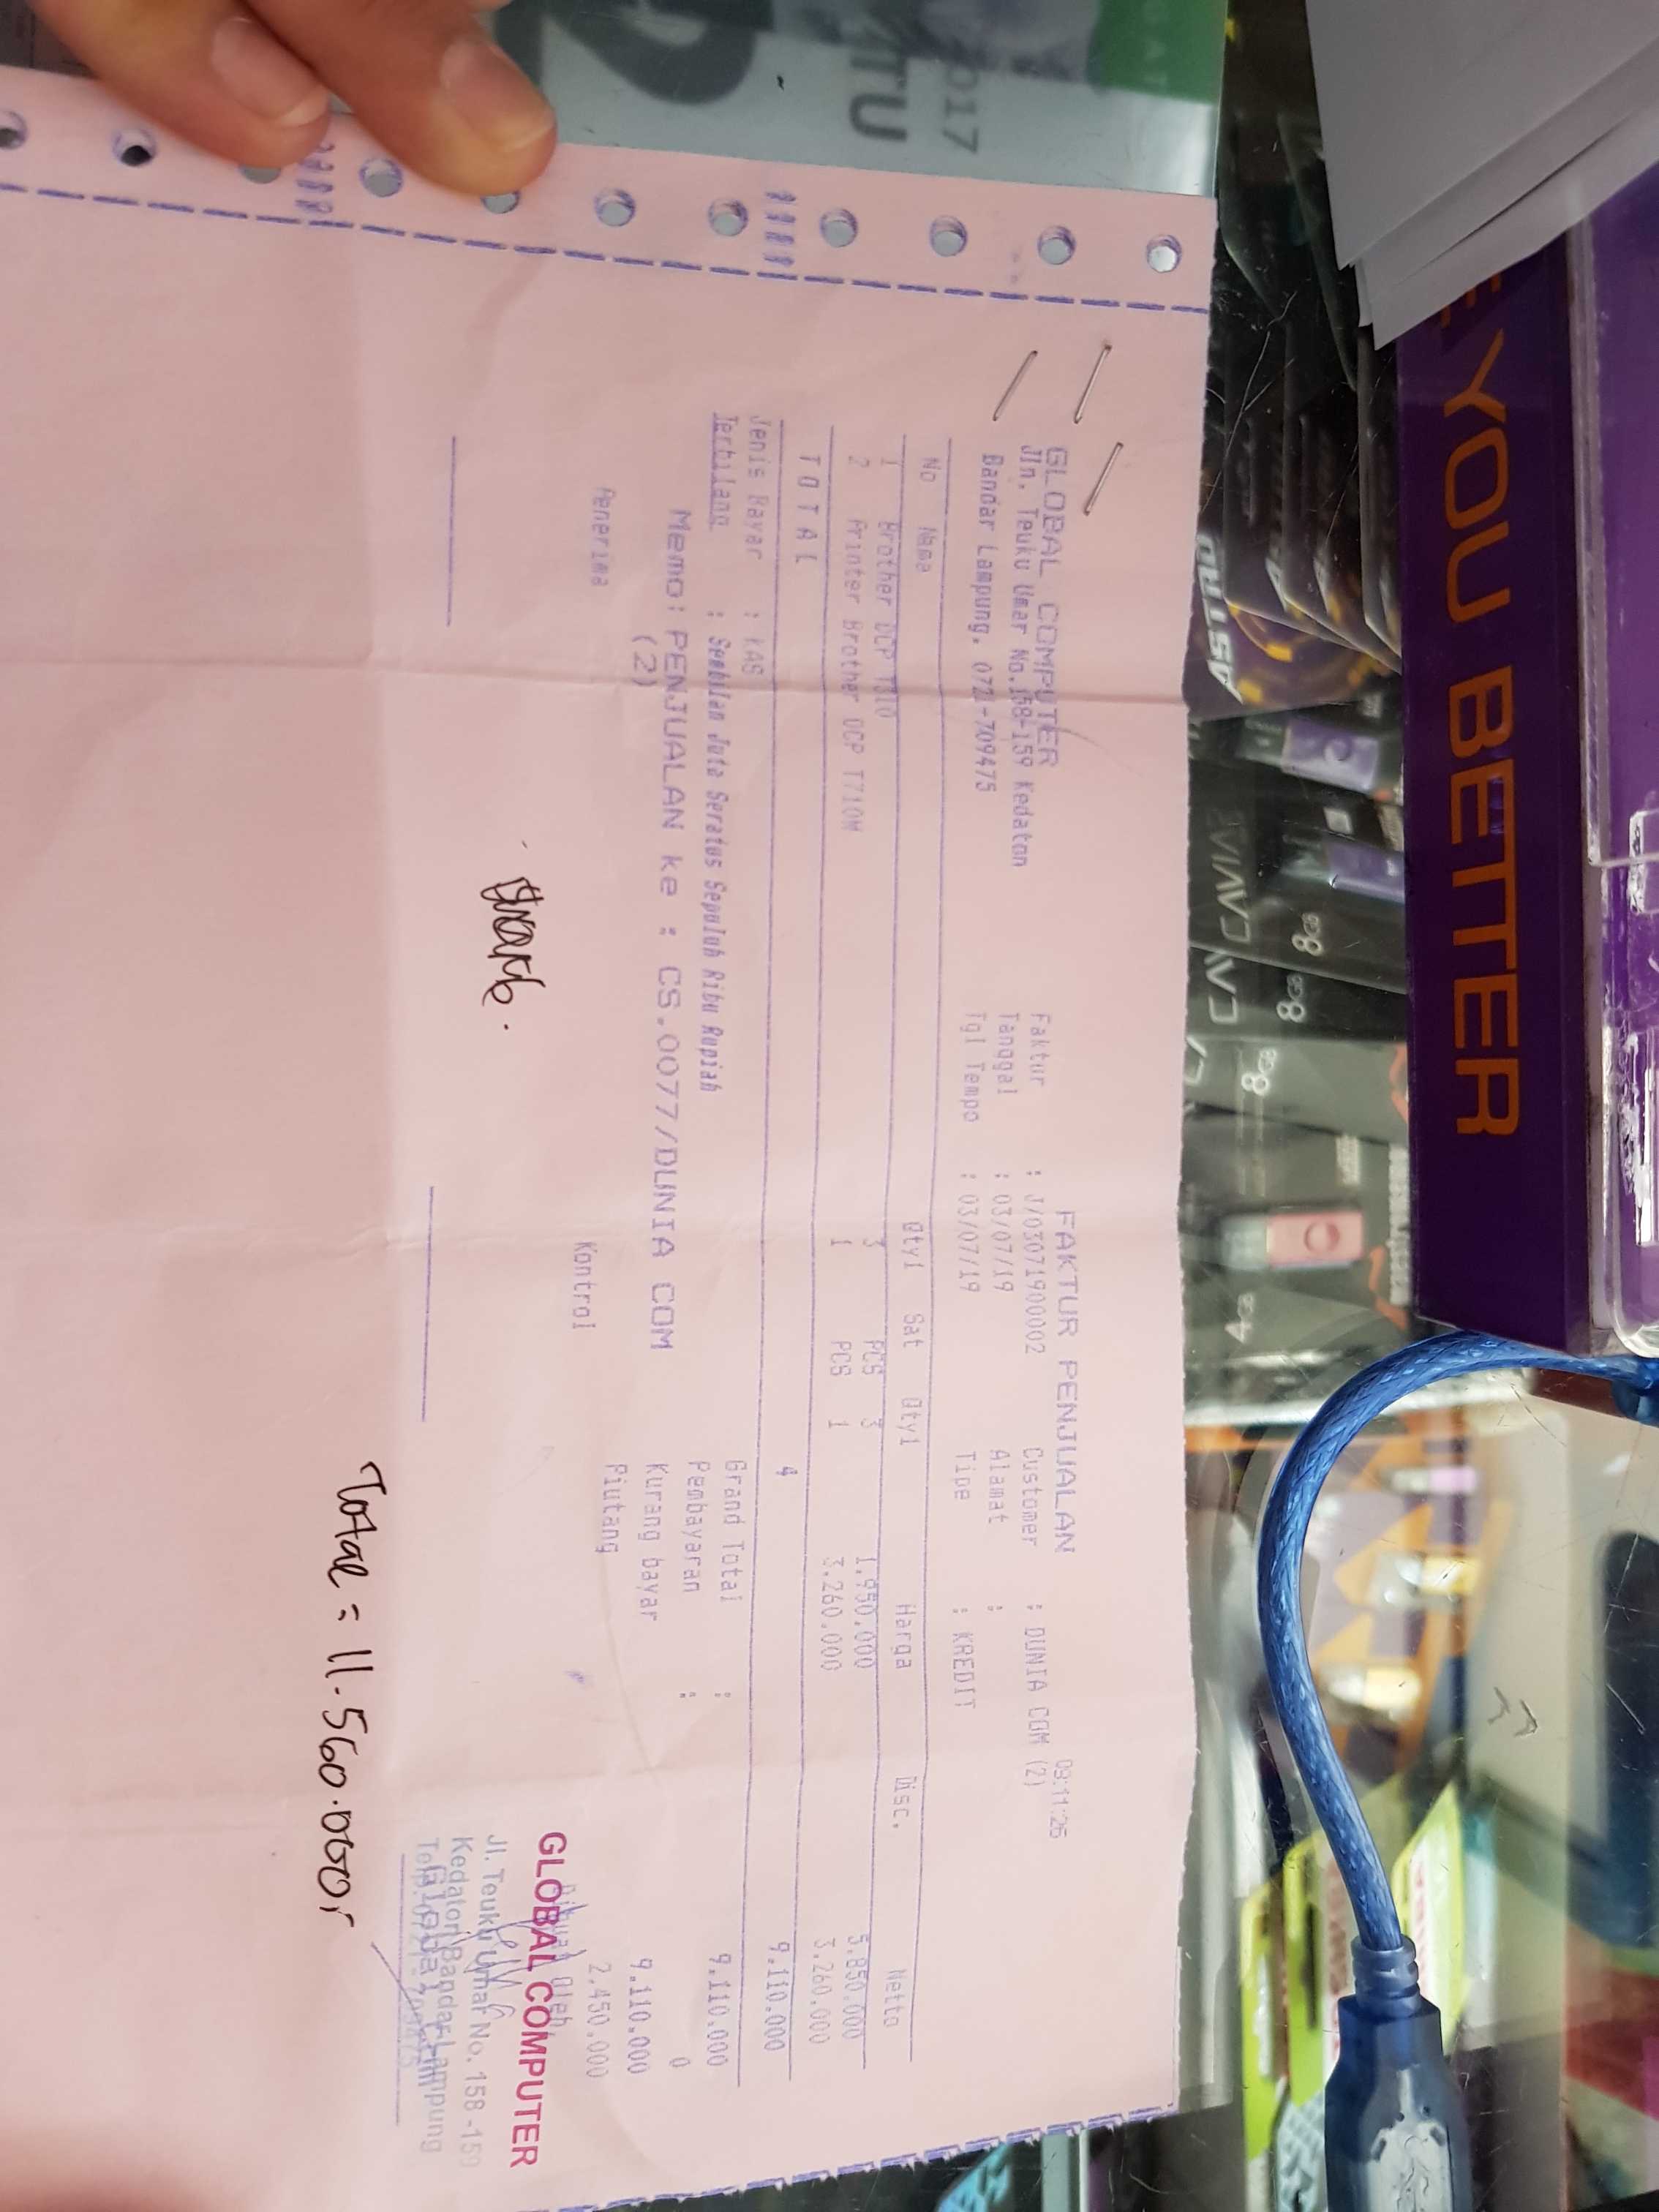 GLOBAL COMPUTER
Jln. Teuku Umar No.158-159 Kedaton
Bandar Lampung. 0721-709475
FAKTUR PENJUALAN 09:11:26
Faktur : J/03071900002
Tanggal : 03/07/19
Tgl Tempo : 03/07/19
Customer : DUNIA COM (2)
Alamat :
Tipe : KREDIT
No Nama Qty1 Sat Qty1 Harga Disc. Netto
1 Brother DCP T310 3 PCS 3 1.950.000 5.850.000
2 Printer Brother DCP T710W 1 PCS 1 3.260.000 3.260.000
T O T A L 4 9.110.000
Jenis Bayar : KAS
Terbilang : Sembilan Juta Seratus Sepuluh Ribu Rupiah
Memo: PENJUALAN ke : CS.0077/DUNIA COM
(2)
Grand Total : 9.110.000
Pembayaran : 0
Kurang bayar 9.110.000
Piutang 2.450.000
Penerima
Kontrol
GLOBAL COMPUTER
Jl. Teuku Umar No. 158 -159
Kedaton Bandar Lampung
Total = 11.560.000,-
YOU BETTER
ASTRO
CAVIV
8GB
8GB
8GB
4GB
2017
TU